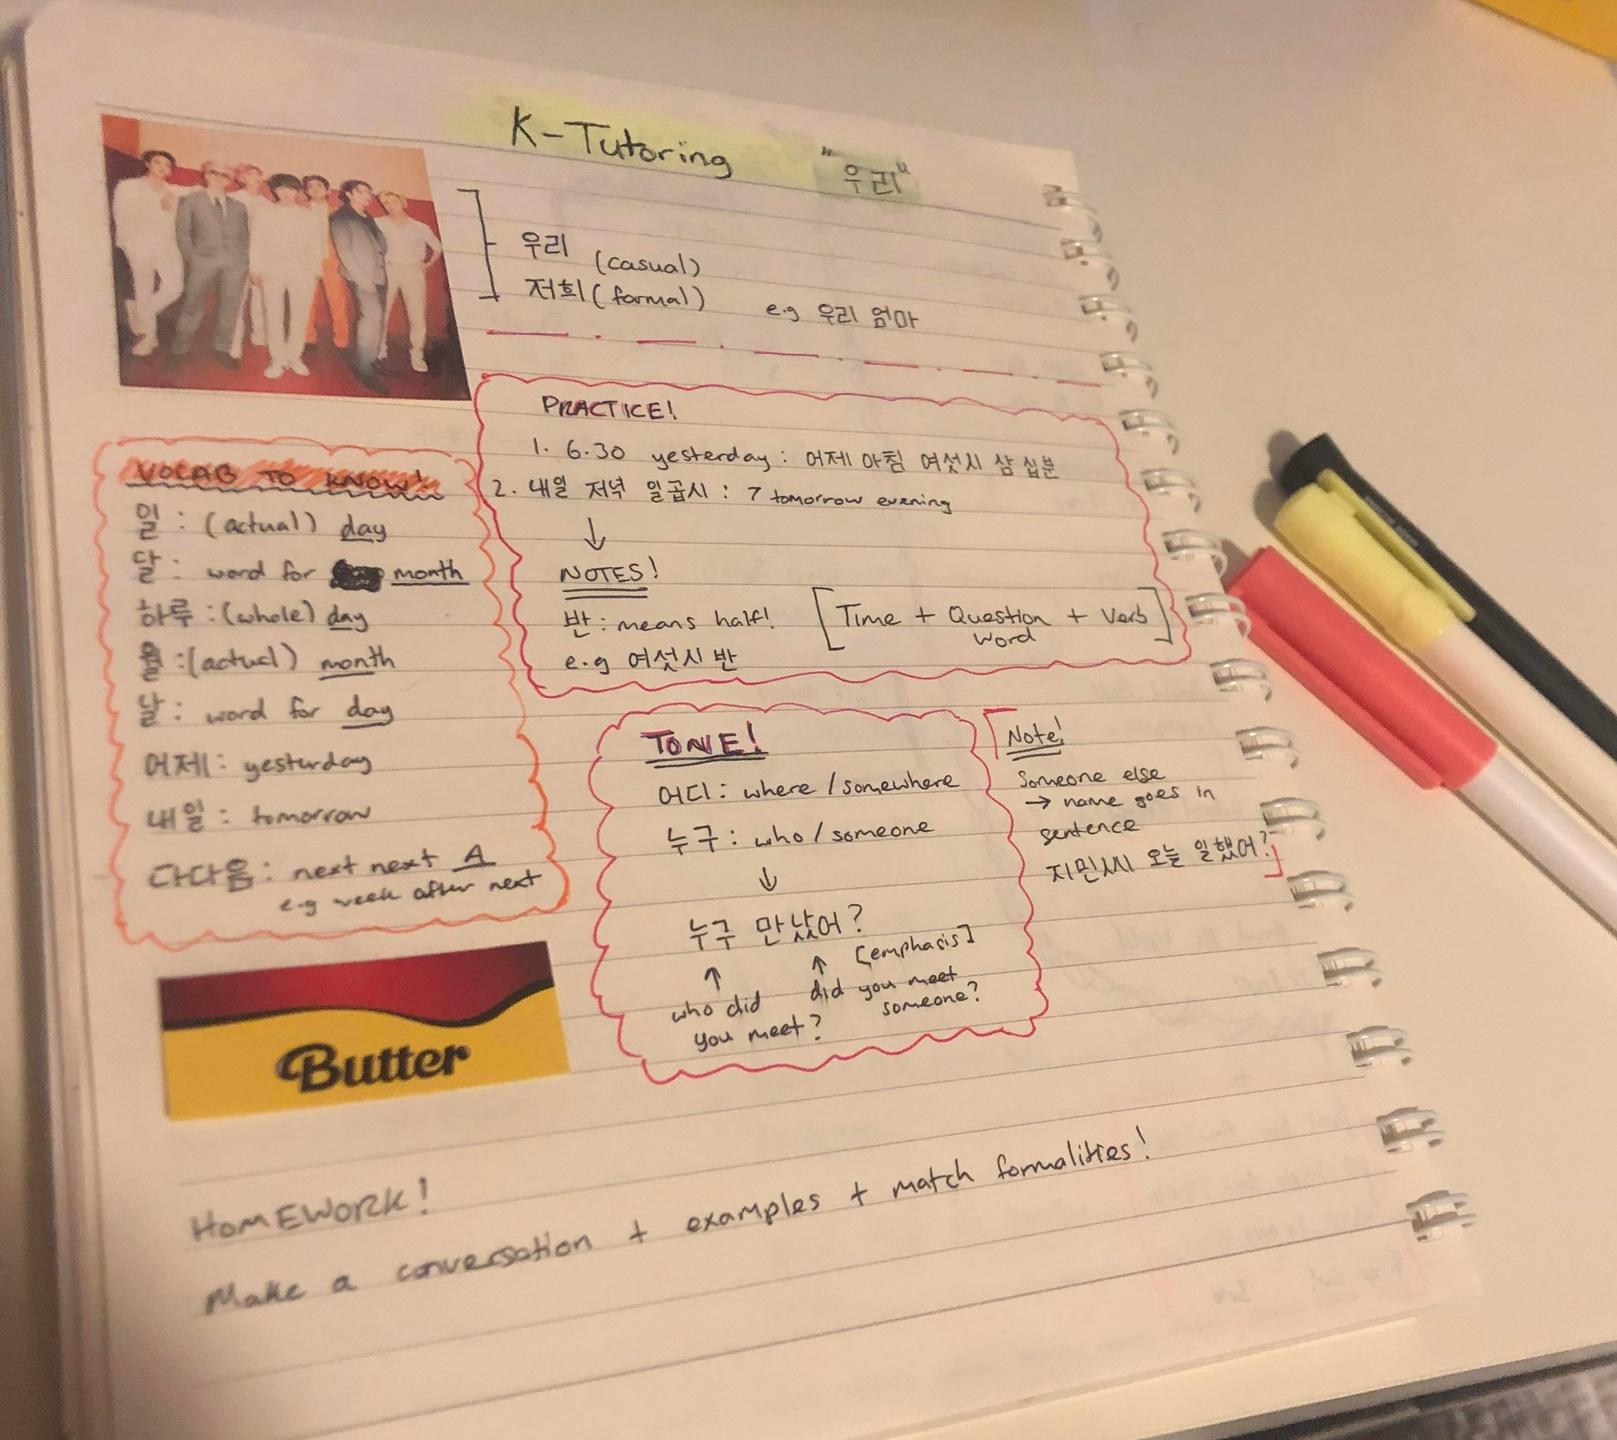 K-Tutoring "우리"
우리 (casual)
저희 (formal) e.g 우리 엄마
PRACTICE!
1. 6.30 yesterday : 어제 아침 여섯시 삼 십분
2. 내일 저녁 일곱시 : 7 tomorrow evening
↓
NOTES!
반 : means half! [Time + Question word + Verb]
e.g 여섯시 반
VOCAB TO KNOW!
일 : (actual) day
달 : word for month
하루 : (whole) day
월 : (actual) month
날 : word for day
어제 : yesterday
내일 : tomorrow
다다음 : next next A
e.g week after next
TONE!
어디 : where / somewhere
누구 : who / someone
↓
누구 만났어?
↑ ↑ [emphasis]
who did
you meet?
did you meet
someone?
Note!
Someone else
→ name goes in
sentence
지민씨 오늘 일했어?
Butter
HOMEWORK!
Make a conversation + examples + match formalities!